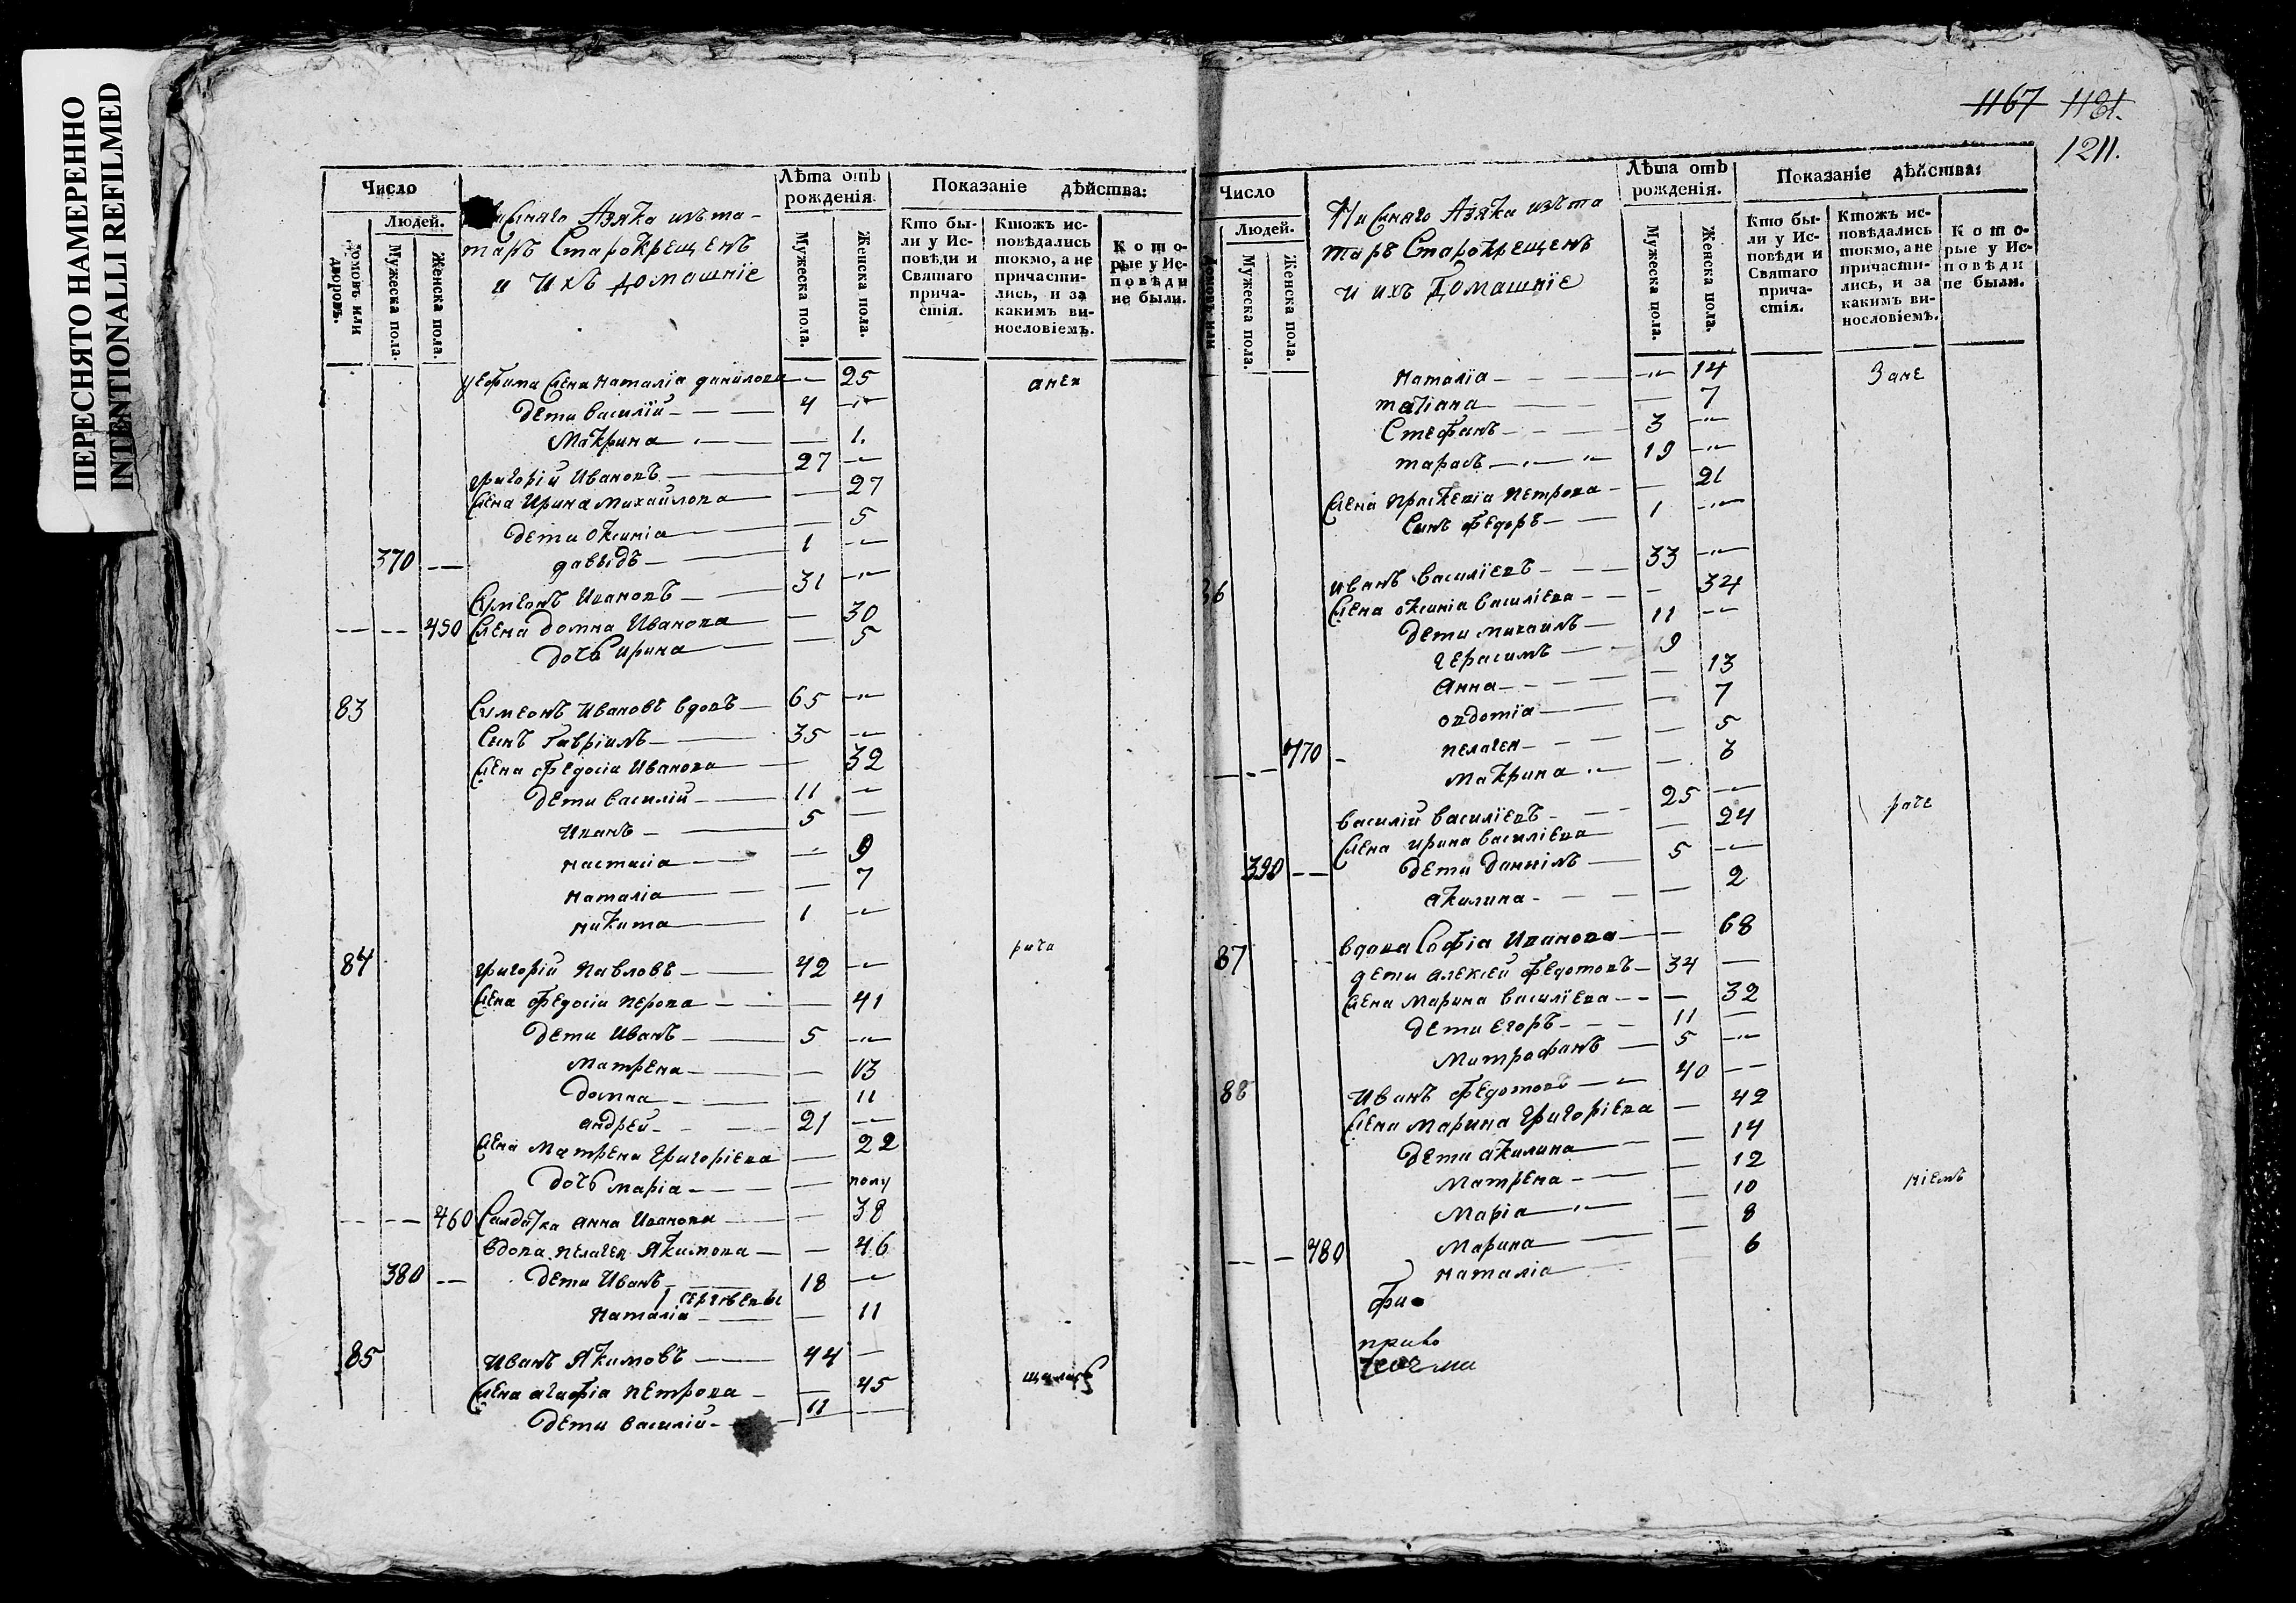 ПЕРЕСНЯТО НАМЕРЕННО
INTENTIONALLI REFILMED
1167 1181.
1211.
Число
Людей.
Домовъ или дворовъ.
Мужеска пола.
Женска пола.
Азяка изъ та-
таръ Старокрещенъ
и ихъ домашніе
Лѣта отъ рожденія.
Мужеска пола.
Женска пола.
Показаніе дѣйства:
Кто бы-
ли у Ис-
повѣди и
Святаго
прича-
стія.
Ктожъ ис-
повѣдались
токмо, а не
причасти-
лись, и за
какимъ ви-
нословіемъ.
Кото-
рые у Ис-
повѣди
не были.
уефима жена наталіа данилова — 25
дети василій — 4
Макрина — 1.
григорій Ивановъ — 27
жена Ирина михайлова — 27
дети оксиніа — 5
370 — давыдъ — 1
Сумеонъ Ивановъ — 31
450 жена домна Иванова — 30
дочь ирина — 5
83 Сумеонъ Ивановъ вдовъ — 65
сынъ гавріилъ — 35
жена федосіа Иванова — 32
дети василій — 11
Иванъ — 5
настасіа — 9
наталіа — 7
никита — 1
84 григорій Павловъ — 42
жена федосіи — 41
дети Иванъ — 5
Матрена — 13
домна — 11
андрей — 21
жена Матрена григоріева — 22
дочь маріа — полу
460 Салдатка анна Иванова — 38
вдова пелагея Якимова — 46
380 — дети Иванъ — 18
Наталіа — 11
85 Иванъ Якимовъ — 44
жена агафіа петрова — 45
дети василій — 11
Число
Людей.
Домовъ или
Мужеска пола.
Женска пола.
Азяка изъ та
таръ Старокрещенъ
и ихъ домашніе
Лѣта отъ рожденія.
Мужеска пола.
Женска пола.
Показаніе дѣйства:
Кто бы-
ли у Ис-
повѣди и
Святаго
прича-
стія.
Ктожъ ис-
повѣдались
токмо, а не
причасти-
лись, и за
какимъ ви-
нословіемъ.
Кото-
рые у Ис-
повѣди
не были.
наталіа — 14
татіана — 7
Стефанъ — 3
тарасъ — 19
жена праскевіа петрова — 21
сынъ федоръ — 1
86 иванъ василіевъ — 33
жена оксиніа василіева — 34
дети михаилъ — 11
герасимъ — 9
анна — 13
овдотіа — 7
470 — пелагея — 5
макрина — 3
василій василіевъ — 25
жена ирина василіева — 24
390 — дети даниилъ — 5
акилина — 2
87 вдова Софіа Иванова — 68
дети алексей федотовъ — 34
жена марина василіева — 32
дети егоръ — 11
митрофанъ — 5
88 иванъ федотовъ — 40
жена марина григоріева — 42
дети акилина — 14
матрена — 12
маріа — 10
480 марина — 8
наталіа — 6